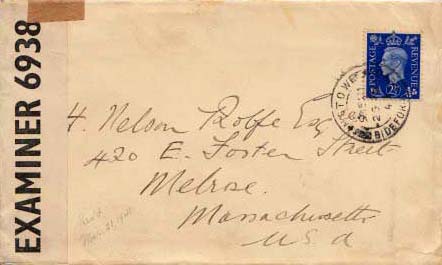 EXAMINER 6938
POSTAGE REVENUE
2½D
BIDEFORD
H. Nelson Rolfe Esq
420 E. Foster Street
Melrose
Massachusetts
U.S.A